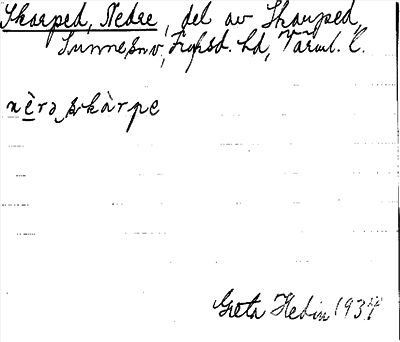 Skarped, Nedre, del av Skarped,
Sunne sn, Fryksd. hd, Värml. l.
nèrə skàrpe
Greta Hedin 1934